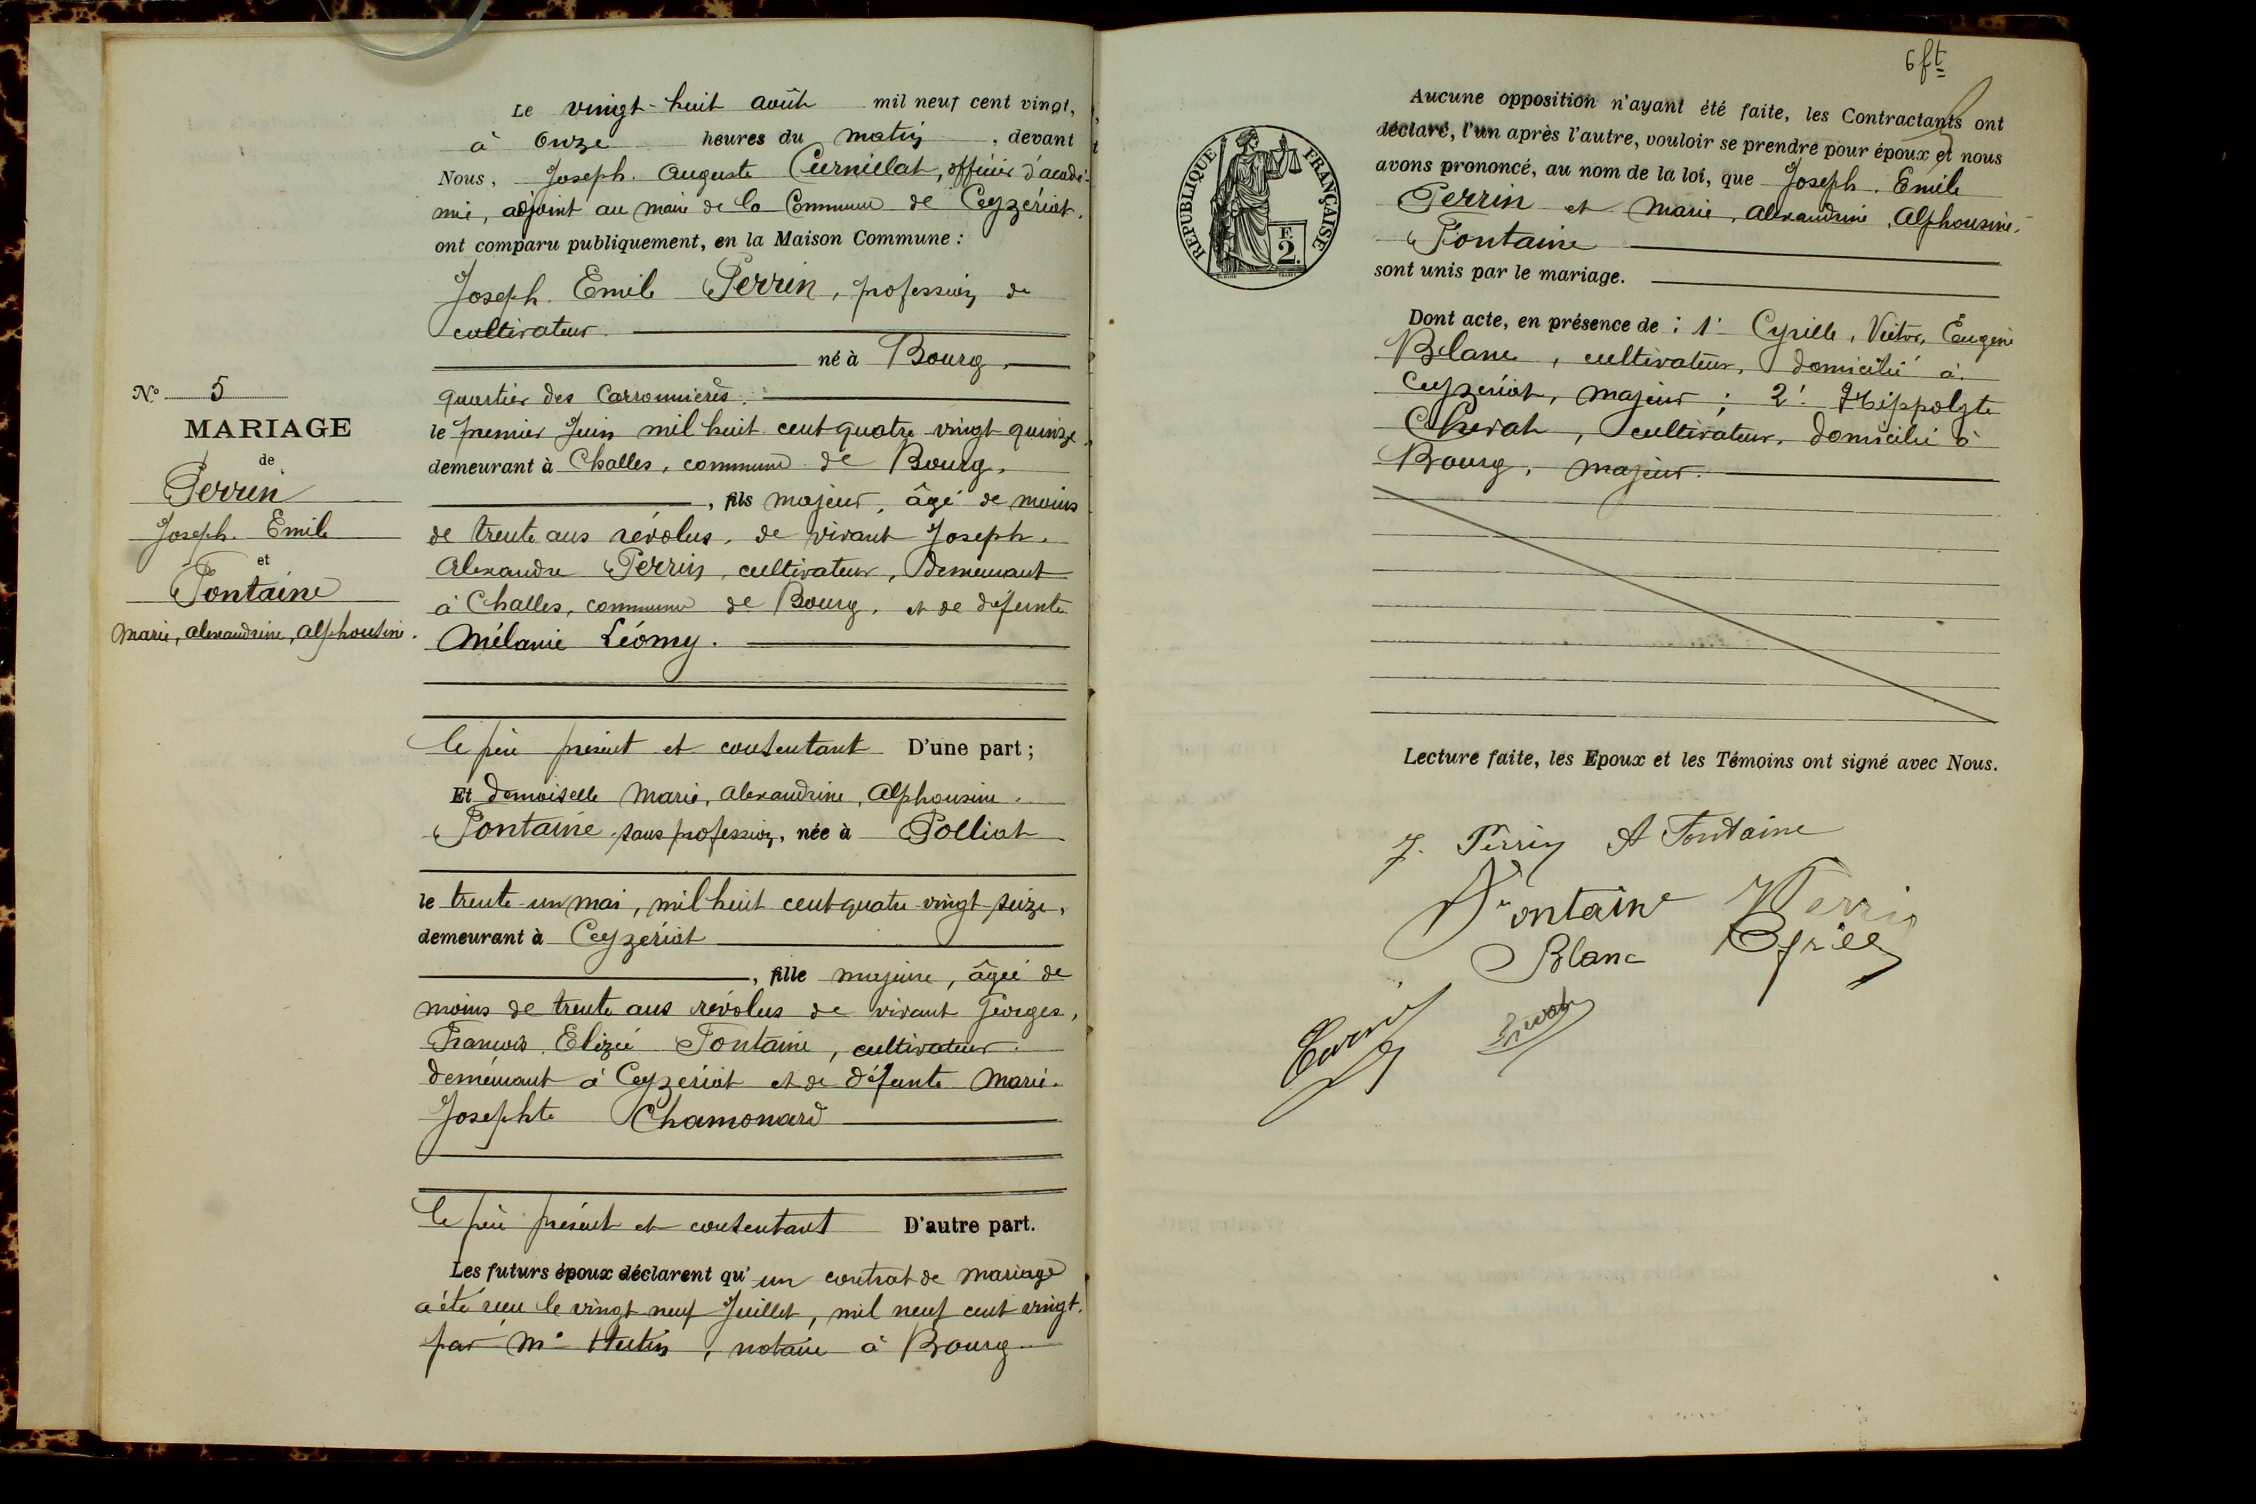 Le vingt-huit août mil neuf cent vingt,
à onze heures du matin, devant
Nous, Joseph Auguste Curnillat, officier d'acadé-
mie, adjoint au maire de la Commune de Ceyzériat.
ont comparu publiquement, en la Maison Commune :
Joseph Emile Perrin, profession de
cultivateur
né à Bourg,
quartier des Carronnières
le premier Juin mil huit cent quatre vingt quinze,
demeurant à Challes, commune de Bourg,
, fils majeur, âgé de moins
de trente ans révolus, de vivant Joseph
Alexandre Perrin, cultivateur, demeurant
à Challes, commune de Bourg, et de défunte
Mélanie Léomy.
le père présent et consentant D'une part ;
Et demoiselle Marie, Alexandrine, Alphonsine
Fontaine sans profession, née à Polliat
le trente-un mai, mil huit cent quatre vingt seize,
demeurant à Ceyzériat
, fille majeure, âgée de
moins de trente ans révolus de vivant Georges,
François Elizée Fontaine, cultivateur
demeurant à Ceyzériat et de défunte Marie
Josephte Chamonard
le père présent et consentant D'autre part.
Les futurs époux déclarent qu'un contrat de mariage
a été reçu le vingt neuf Juillet, mil neuf cent vingt,
par Me Hutin, notaire à Bourg
N° 5
MARIAGE
de
Perrin
Joseph Emile
et
Fontaine
Marie, Alexandrine, Alphonsine.
6 ft
RÉPUBLIQUE FRANÇAISE
F. 2.
Aucune opposition n'ayant été faite, les Contractants ont
déclaré, l'un après l'autre, vouloir se prendre pour époux et nous
avons prononcé, au nom de la loi, que Joseph Emile
Perrin et Marie, Alexandrine, Alphonsine
Fontaine
sont unis par le mariage.
Dont acte, en présence de : 1° Cyrille, Victor, Eugène
Blanc, cultivateur, domicilié à
Ceyzériat, majeur ; 2° Hippolyte
Chevat, cultivateur, domicilié à
Bourg, majeur.
Lecture faite, les Epoux et les Témoins ont signé avec Nous.
J. Perrin A Fontaine
Fontaine Perrin
Blanc Cyrille